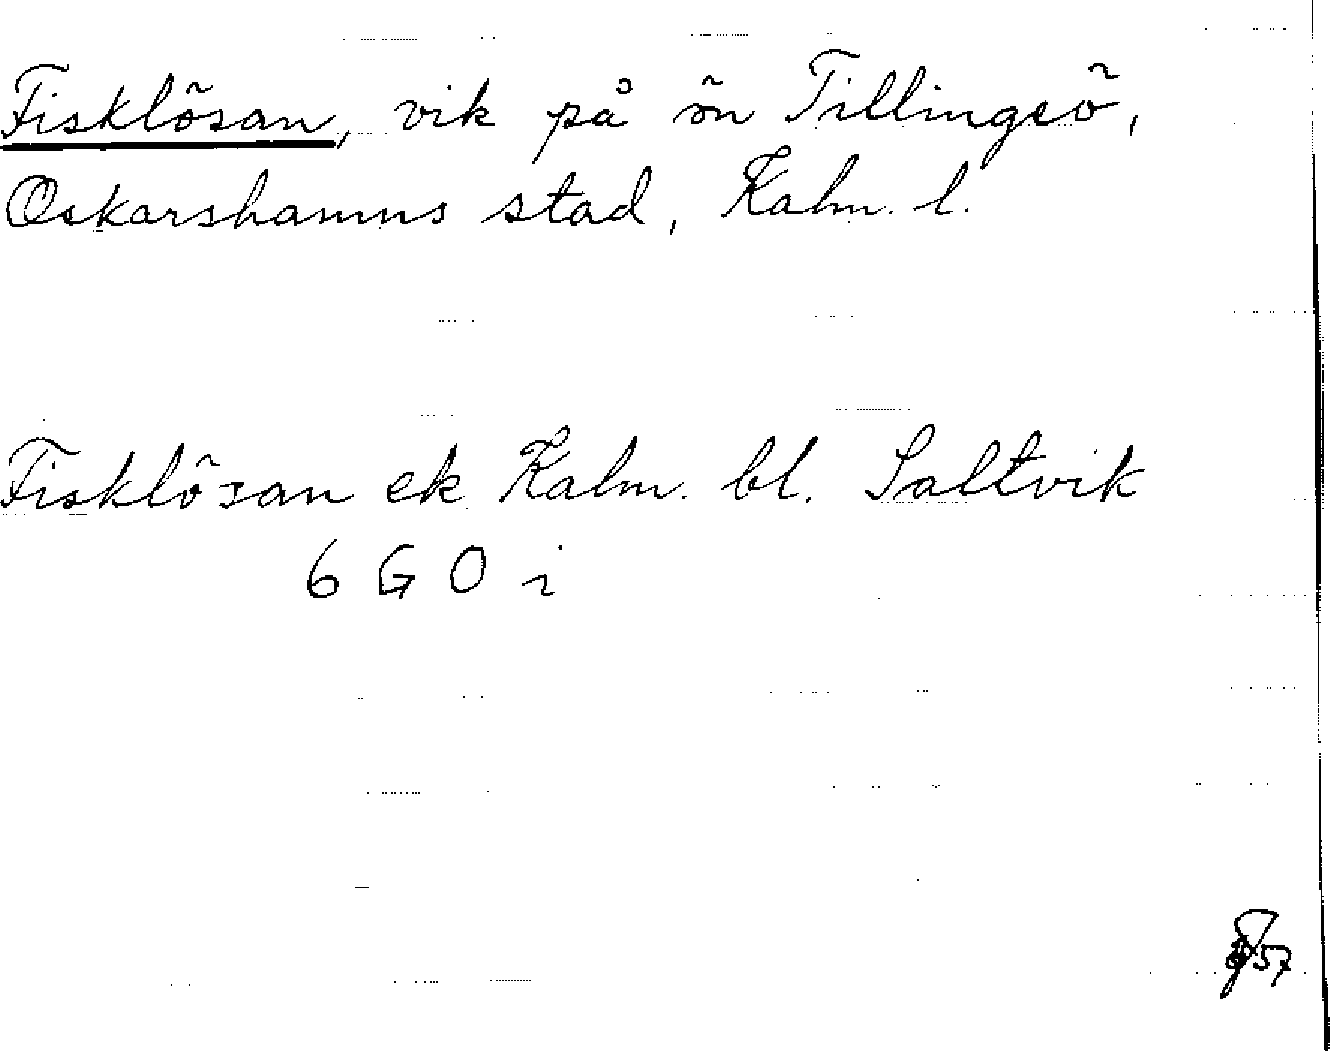 Fisklösan, vik på ön Tillingsö,
Oskarshamns stad, Kalm. l.
Fisklösan ek Kalm. bl. Saltvik
6 G 0 i
57